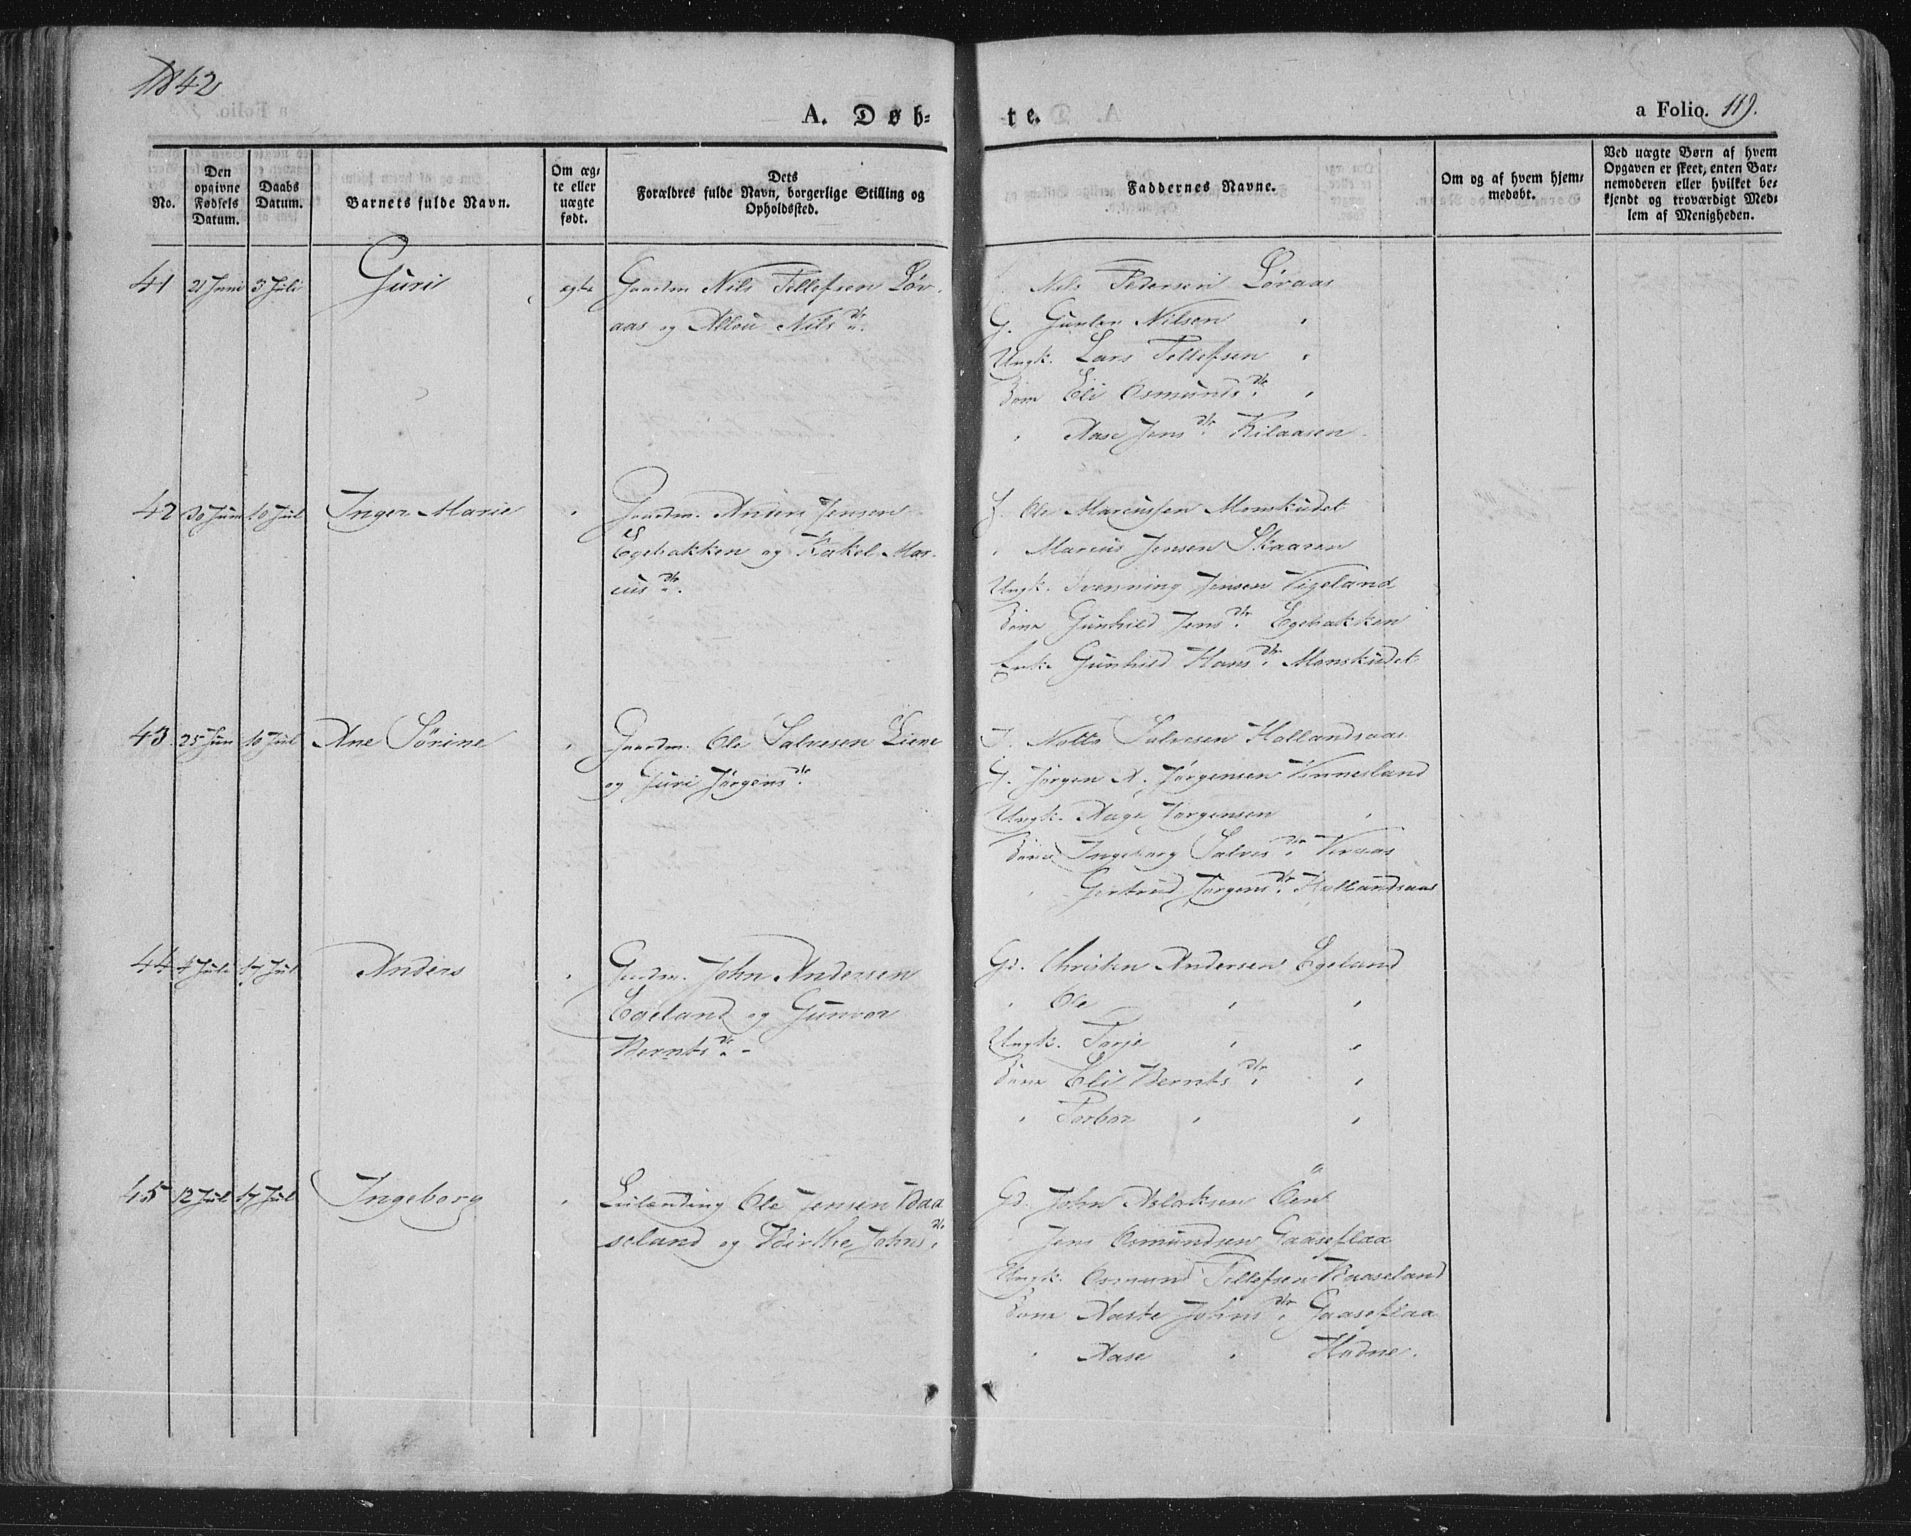 1842
A. Døb-
te.
a Folio. 119.
No.
Den opgivne Fødsels Datum.
Daabs Datum.
Barnets fulde Navn.
Om ægte eller uægte født.
Dets
Forældres fulde Navn, borgerlige Stilling og
Opholdssted.
Faddernes Navne.
Om og af hvem hjem-
medøbt.
Ved uægte Børn af hvem
Opgaven er skeet, enten Bar-
nemoderen eller hvilket be-
kjendt og troværdigt Med-
lem af Menigheden.
41 21 Juni 3 Juli Guri ægte Gaardm Nils Tellefsen Løv-
aas og Nils dtr.
Nils Pedersen Løvaas
G. Gunder Nilsen "
Ungk. Lars Tellefsen "
Kone Eli Osmunds dtr. "
" Aase Jens dtr. Kilaasen
42 30 Jun 10 Jul Inger Marie " Gaardm. Anders Jensen
Egebakken og Rakel Mar-
cus dtr.
G. Ole Marcussen Monskudet
" Marcus Jensen Skaaren
Ungk. Svenning Jensen Vigeland
Kone Gunhild Jens dtr. Egebakken
Enke Gunhild Hans dtr. Monskudet
43 25 Jun 10 Jul Ane Sørine " Gaardm. Ole Salvesen Liene
og Guri Jørgens dtr.
G. Notto Salvesen Hollandsaas
G. Jørgen A. Jørgensen Vinnesland
Ungk. Aage Jørgensen "
Kone Ingeborg Salves dtr. Veraas
" Gertrud Jørgens dtr. Hollandsaas
44 4 Juli 17 Jul Anders " Gaardm. John Andersen
Egeland og Gunvor
Bernts dtr. -
Gd. Christen Andersen Egeland
" Ole " "
Ungk. Tarje " "
Kone Eli Bernts dtr. "
" Torbor " "
45 12 Jul 17 Jul Ingeborg " Leilænding Ole Jensen Baa
seland og Birthe Johns dtr.
Gd. John Aslaksen Öen
" Jens Osmundsen Gaaseflaa
Ungk. Osmund Tellefsen Baaseland
Kone Aaste Johns dtr. Gaaseflaa
" Aase " Hodne.